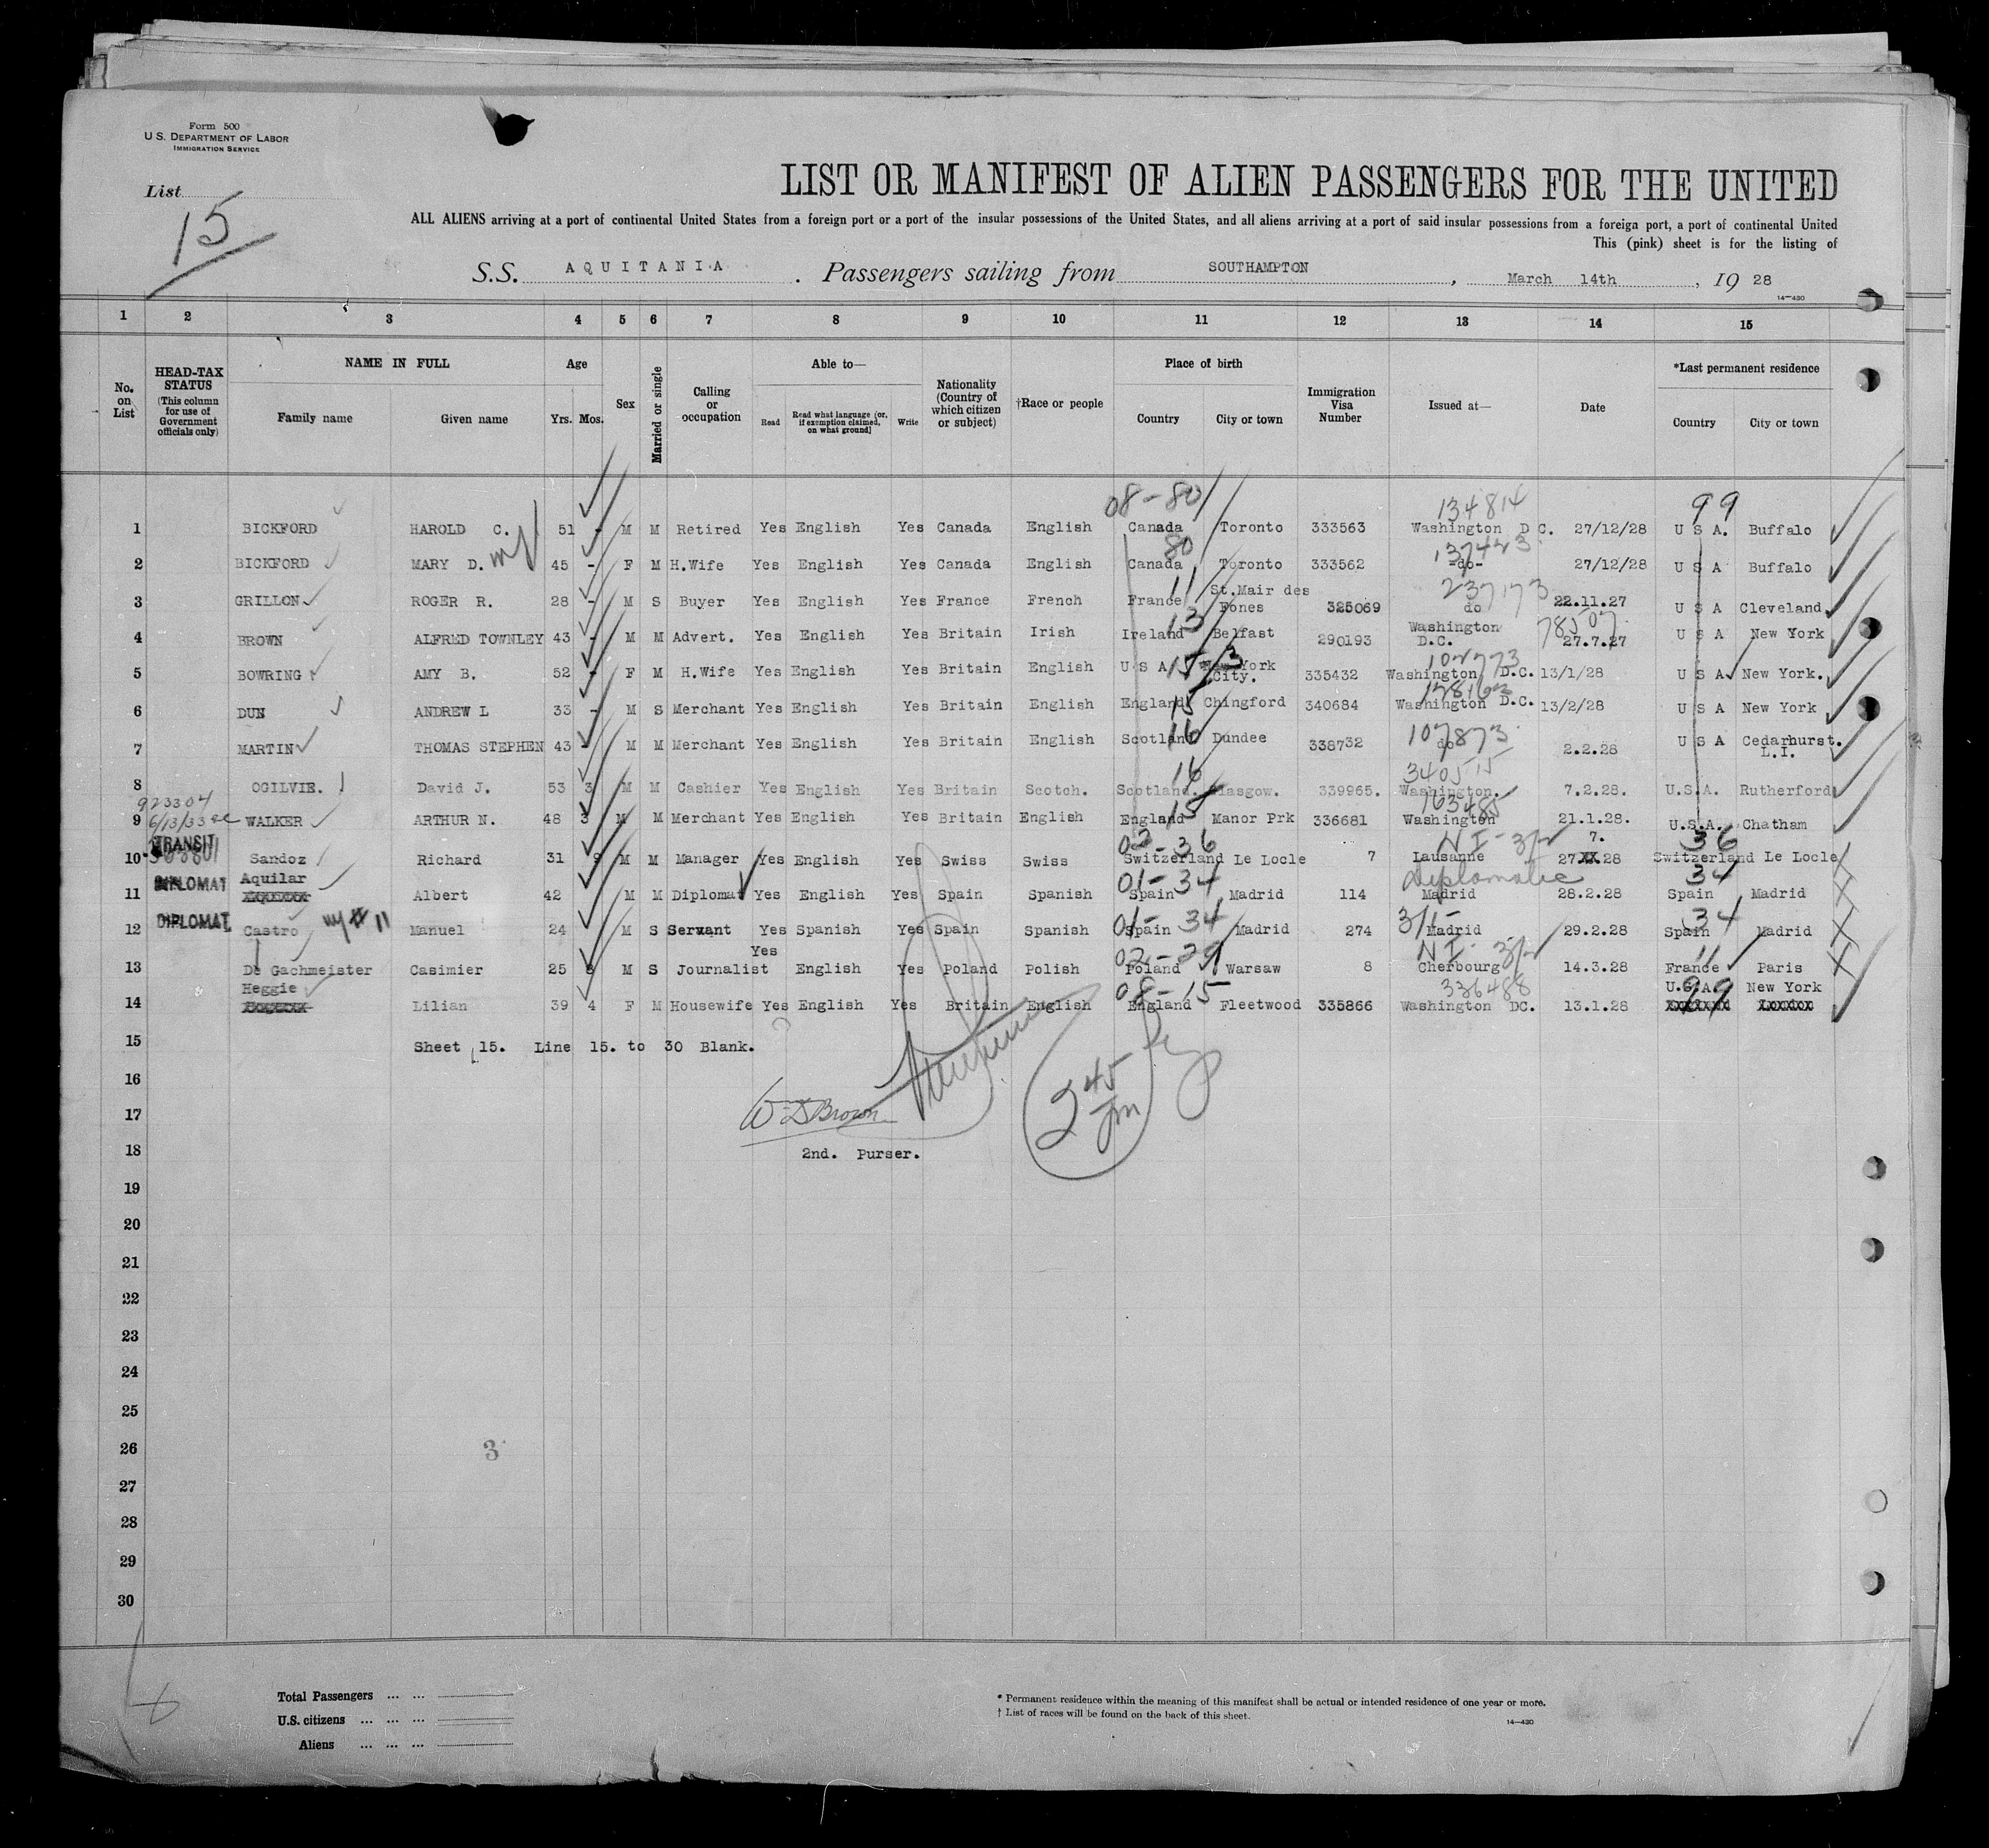 Form 500
U S. DEPARTMENT OF LABOR
IMMIGRATION SERVICE
List
15
LIST OR MANIFEST OF ALIEN PASSENGERS FOR THE UNITED
ALL ALIENS arriving at a port of continental United States from a foreign port or a port of the insular possessions of the United States, and all aliens arriving at a port of said insular possessions from a foreign port, a port of continental United
This (pink) sheet is for the listing of
S.S. AQUITANIA. Passengers sailing from SOUTHAMPTON, March 14th, 1928
14—430
1 2 3 4 5 6 7 8 9 10 11 12 13 14 15
No. on List
HEAD-TAX STATUS (This column for use of Government officials only)
NAME IN FULL
Family name Given name
Age
Yrs. Mos.
Sex
Married or single
Calling or occupation
Able to—
Read Read what language [or, if exemption claimed, on what ground] Write
Nationality (Country of which citizen or subject)
†Race or people
Place of birth
Country City or town
Immigration Visa Number
Issued at—
Date
*Last permanent residence
Country City or town
08-80 134814 99
1 BICKFORD HAROLD C. 51 - M M Retired Yes English Yes Canada English Canada Toronto 333563 Washington D C. 27/12/28 U S A. Buffalo
80 137423
2 BICKFORD MARY D. 45 - F M H.Wife Yes English Yes Canada English Canada Toronto 333562 -do- 27/12/28 U S A Buffalo
11 237173
3 GRILLON ROGER R. 28 - M S Buyer Yes English Yes France French France St.Mair des Fones 325069 do 22.11.27 U S A Cleveland
13 78507
4 BROWN ALFRED TOWNLEY 43 - M M Advert. Yes English Yes Britain Irish Ireland Belfast 290193 Washington D.C. 27.7.27 U S A New York
15 3
5 BOWRING AMY B. 52 - F M H.Wife Yes English Yes Britain English U S A New York City. 335432 Washington D.C. 13/1/28 U S A New York.
15
6 DUN ANDREW L 33 - M S Merchant Yes English Yes Britain English England Chingford 340684 Washington D.C. 13/2/28 U S A New York
16 107873
7 MARTIN THOMAS STEPHEN 43 - M M Merchant Yes English Yes Britain English Scotland Dundee 338732 do 2.2.28 U S A Cedarhurst. L.I.
16 340515
8 OGILVIE. David J. 53 3 M M Cashier Yes English Yes Britain Scotch. Scotland. Glasgow. 339965. Washington. 7.2.28. U.S.A. Rutherford
923304 15 163485
9 6/13/33 WALKER ARTHUR N. 48 3 M M Merchant Yes English Yes Britain English England Manor Prk 336681 Washington 21.1.28. U.S.A. Chatham
TRANSIT 02-36 NI- 7. 36
10 Sandoz Richard 31 9 M M Manager Yes English Yes Swiss Swiss Switzerland Le Locle 7 Lausanne 27.XX.28 Switzerland Le Locle
Aquilar 01-34 Diplomatic 34
11 DIPLOMAT Albert 42 M M Diplomat Yes English Yes Spain Spanish Spain Madrid 114 Madrid 28.2.28 Spain Madrid
01-34 34
12 DIPLOMAT Castro Manuel 24 M S Servant Yes Spanish Yes Spain Spanish Spain Madrid 274 Madrid 29.2.28 Spain Madrid
02-29 NI- 11
13 De Gachmeister Casimier 25 8 M S Journalist Yes English Yes Poland Polish Poland Warsaw 8 Cherbourg 14.3.28 France Paris
Heggie 08-15 336488 99 U.S.A. New York
14 Lilian 39 4 F M Housewife Yes English Yes Britain English England Fleetwood 335866 Washington DC. 13.1.28
15 Sheet 15. Line 15. to 30 Blank.
16
17 W D Brown
18 2nd. Purser.
245
19
20
21
22
23
24
25
26
3
27
28
29
30
Total Passengers ... ...
U.S. citizens ... ... ...
Aliens ... ... ...
* Permanent residence within the meaning of this manifest shall be actual or intended residence of one year or more.
† List of races will be found on the back of this sheet.
14—430